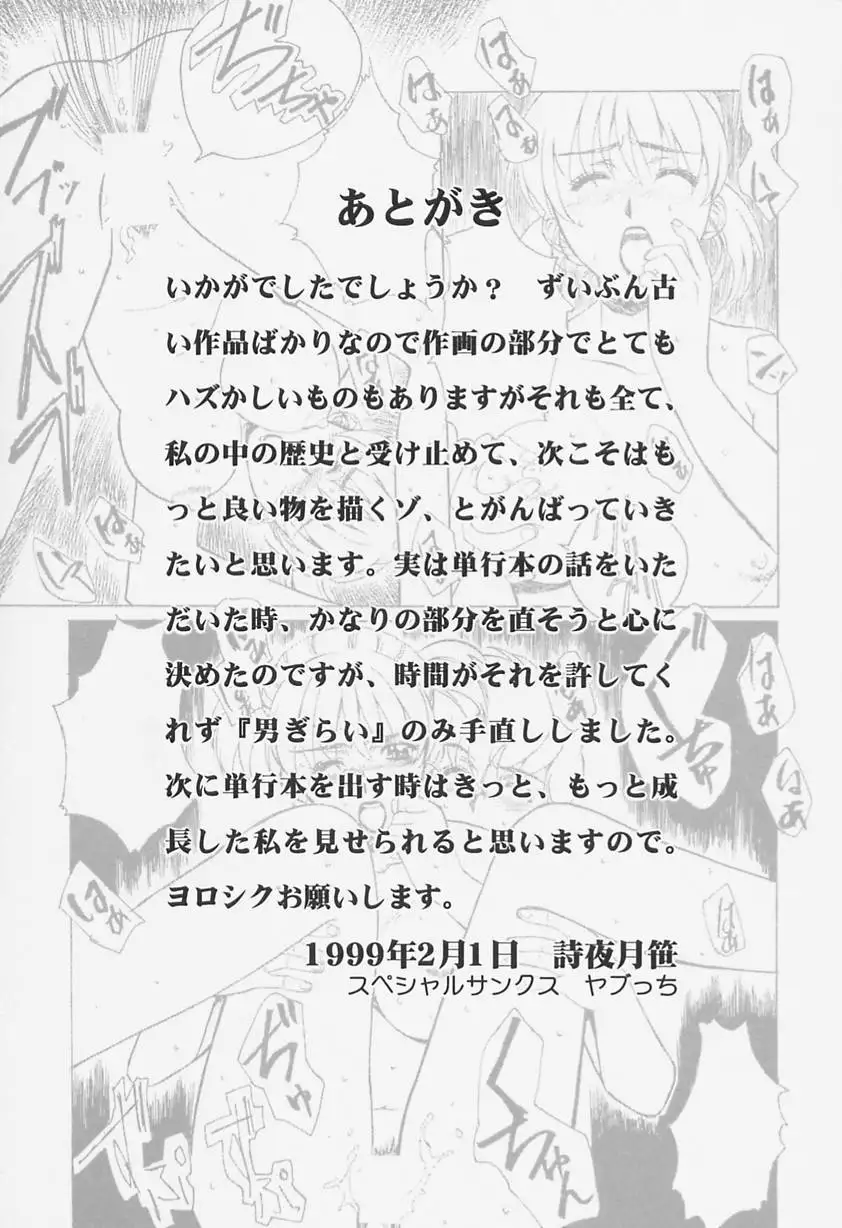 あとがき
いかがでしたでしょうか?　ずいぶん古
い作品ばかりなので作画の部分でとても
ハズかしいものもありますがそれも全て、
私の中の歴史と受け止めて、次こそはも
っと良い物を描くゾ、とがんばっていき
たいと思います。実は単行本の話をいた
だいた時、かなりの部分を直そうと心に
決めたのですが、時間がそれを許してく
れず『男ぎらい』のみ手直ししました。
次に単行本を出す時はきっと、もっと成
長した私を見せられると思いますので。
ヨロシクお願いします。
1999年2月1日　詩夜月笹
スペシャルサンクス　ヤブっち
はぁ
はぁ
はぁ
はぁ
はぁ
はぁ
はぁ
ぢゅ